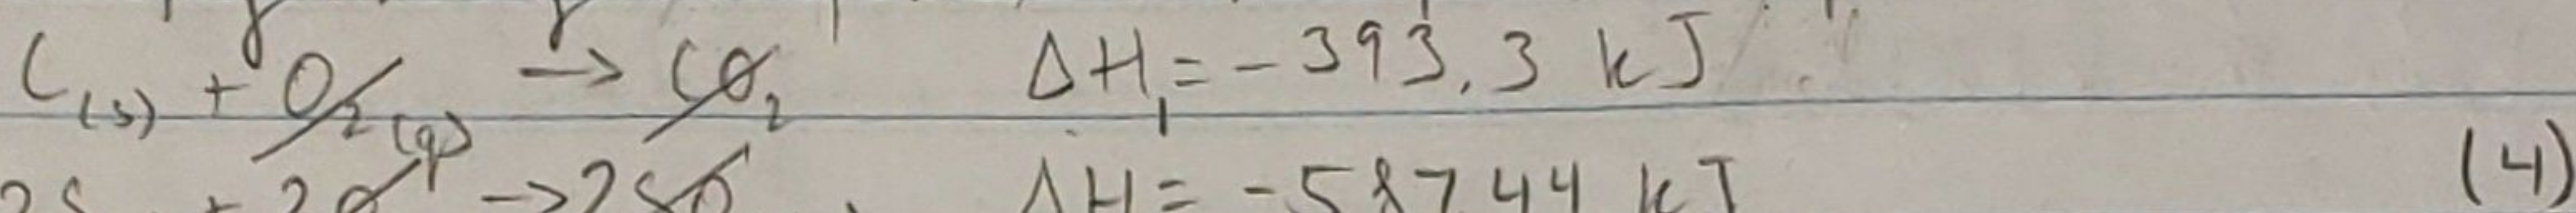 C(s) + O2(g) → CO2 ΔH1 = -393.3 kJ
2S + 2O → 2SO ΔH = -587.44 kJ (4)